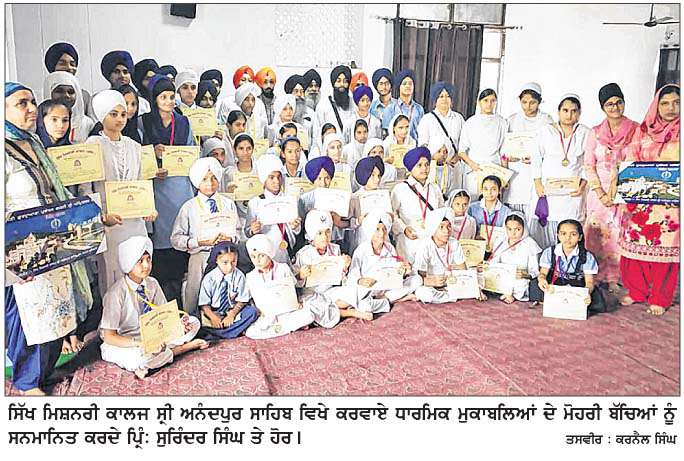 ਸਿੱਖ ਮਿਸ਼ਨਰੀ ਕਾਲਜ ਸ੍ਰੀ ਅਨੰਦਪੁਰ ਸਾਹਿਬ ਵਿਖੇ ਕਰਵਾਏ ਧਾਰਮਿਕ ਮੁਕਾਬਲਿਆਂ ਦੇ ਮੋਹਰੀ ਬੱਚਿਆਂ ਨੂੰ
ਸਨਮਾਨਿਤ ਕਰਦੇ ਪ੍ਰਿੰ: ਸੁਰਿੰਦਰ ਸਿੰਘ ਤੇ ਹੋਰ। ਤਸਵੀਰ : ਕਰਨੈਲ ਸਿੰਘ